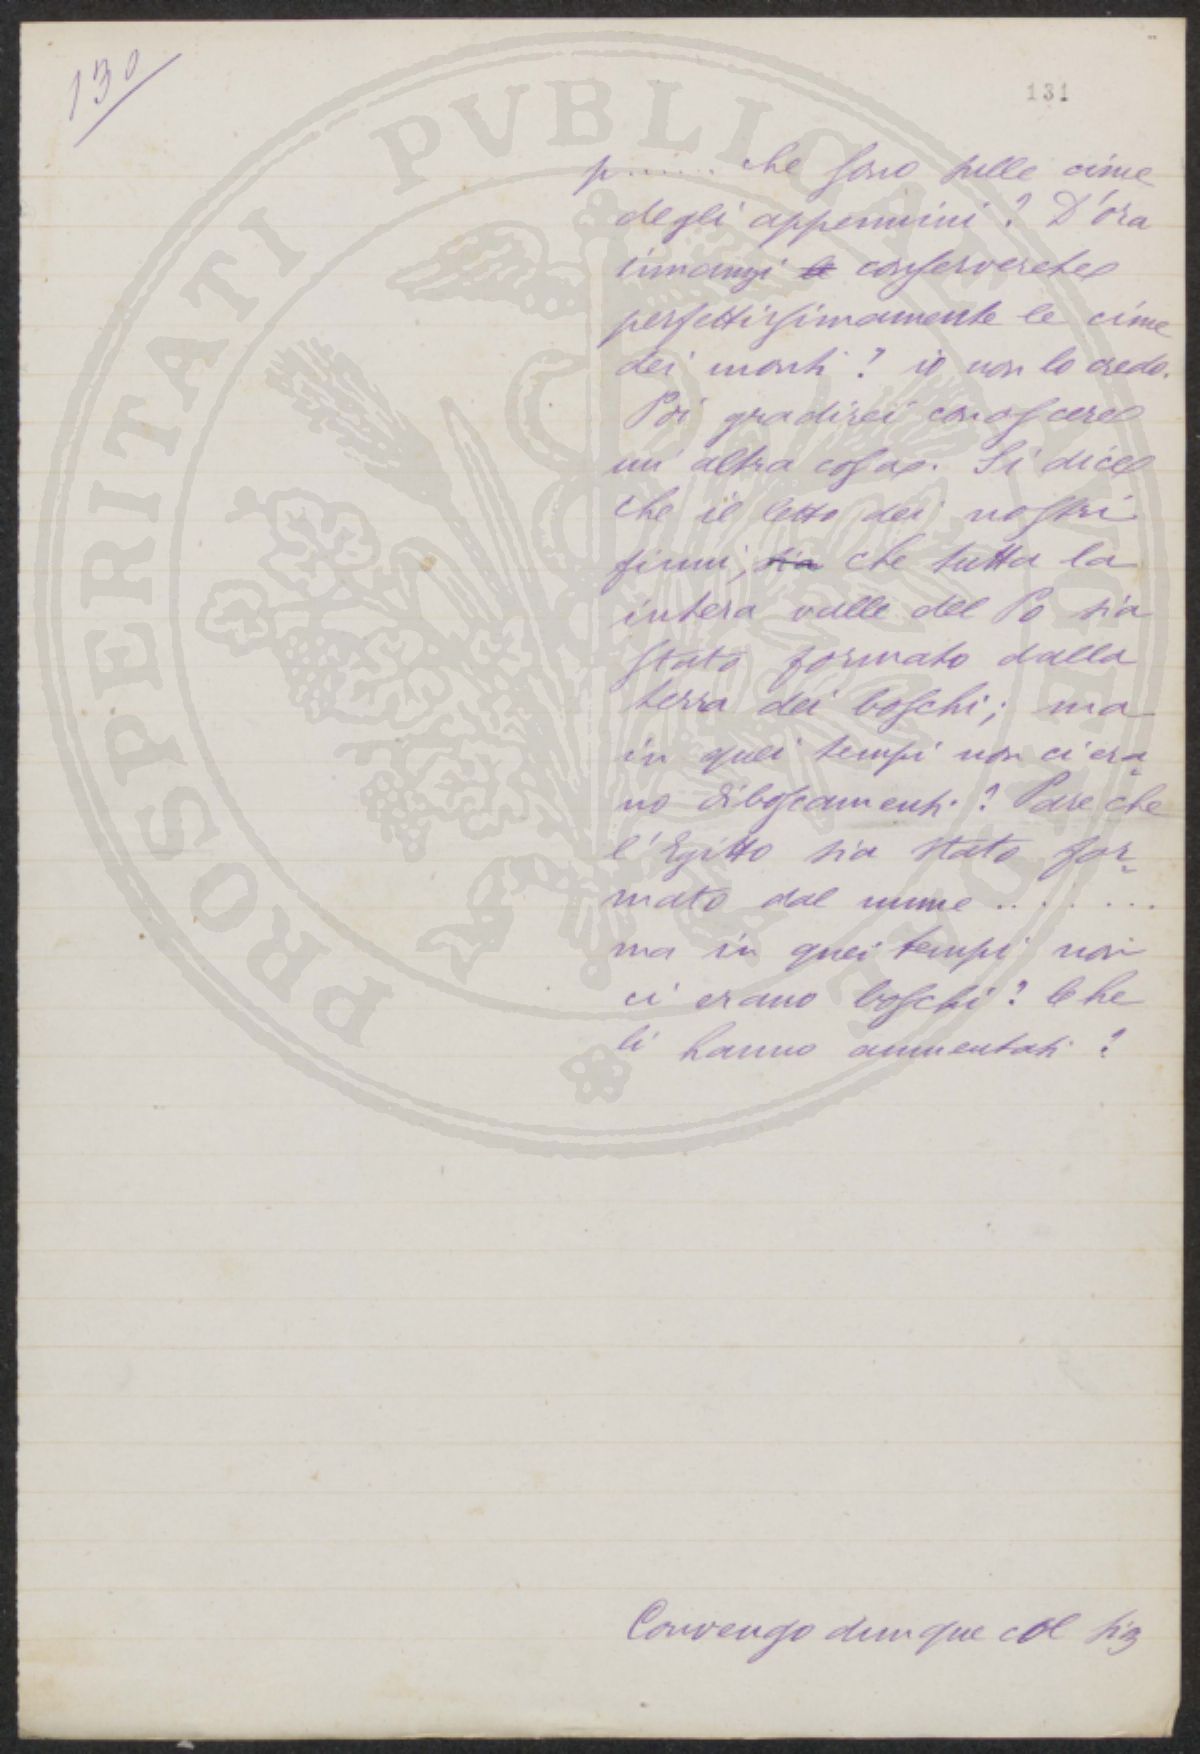 130
131
p....... che sono sulle cime
degli appennini? D'ora
innanzi le conserverete
perfettissimamente le cime
dei monti? io non lo credo.
Poi gradirei conoscere
un' altra cosa. Si dice
che il letto dei nostri
fiumi, sia che tutta la
intera valle del Po sia
stato formato dalla
terra dei boschi; ma
in quei tempi non ci era-
no disboscamenti? Pare che
l'Egitto sia stato for-
mato dal nume ........
ma in quei tempi non
ci erano boschi? Che
li hanno aumentati?
Convengo dunque col sig
PROSPERITATI PVBLICAE